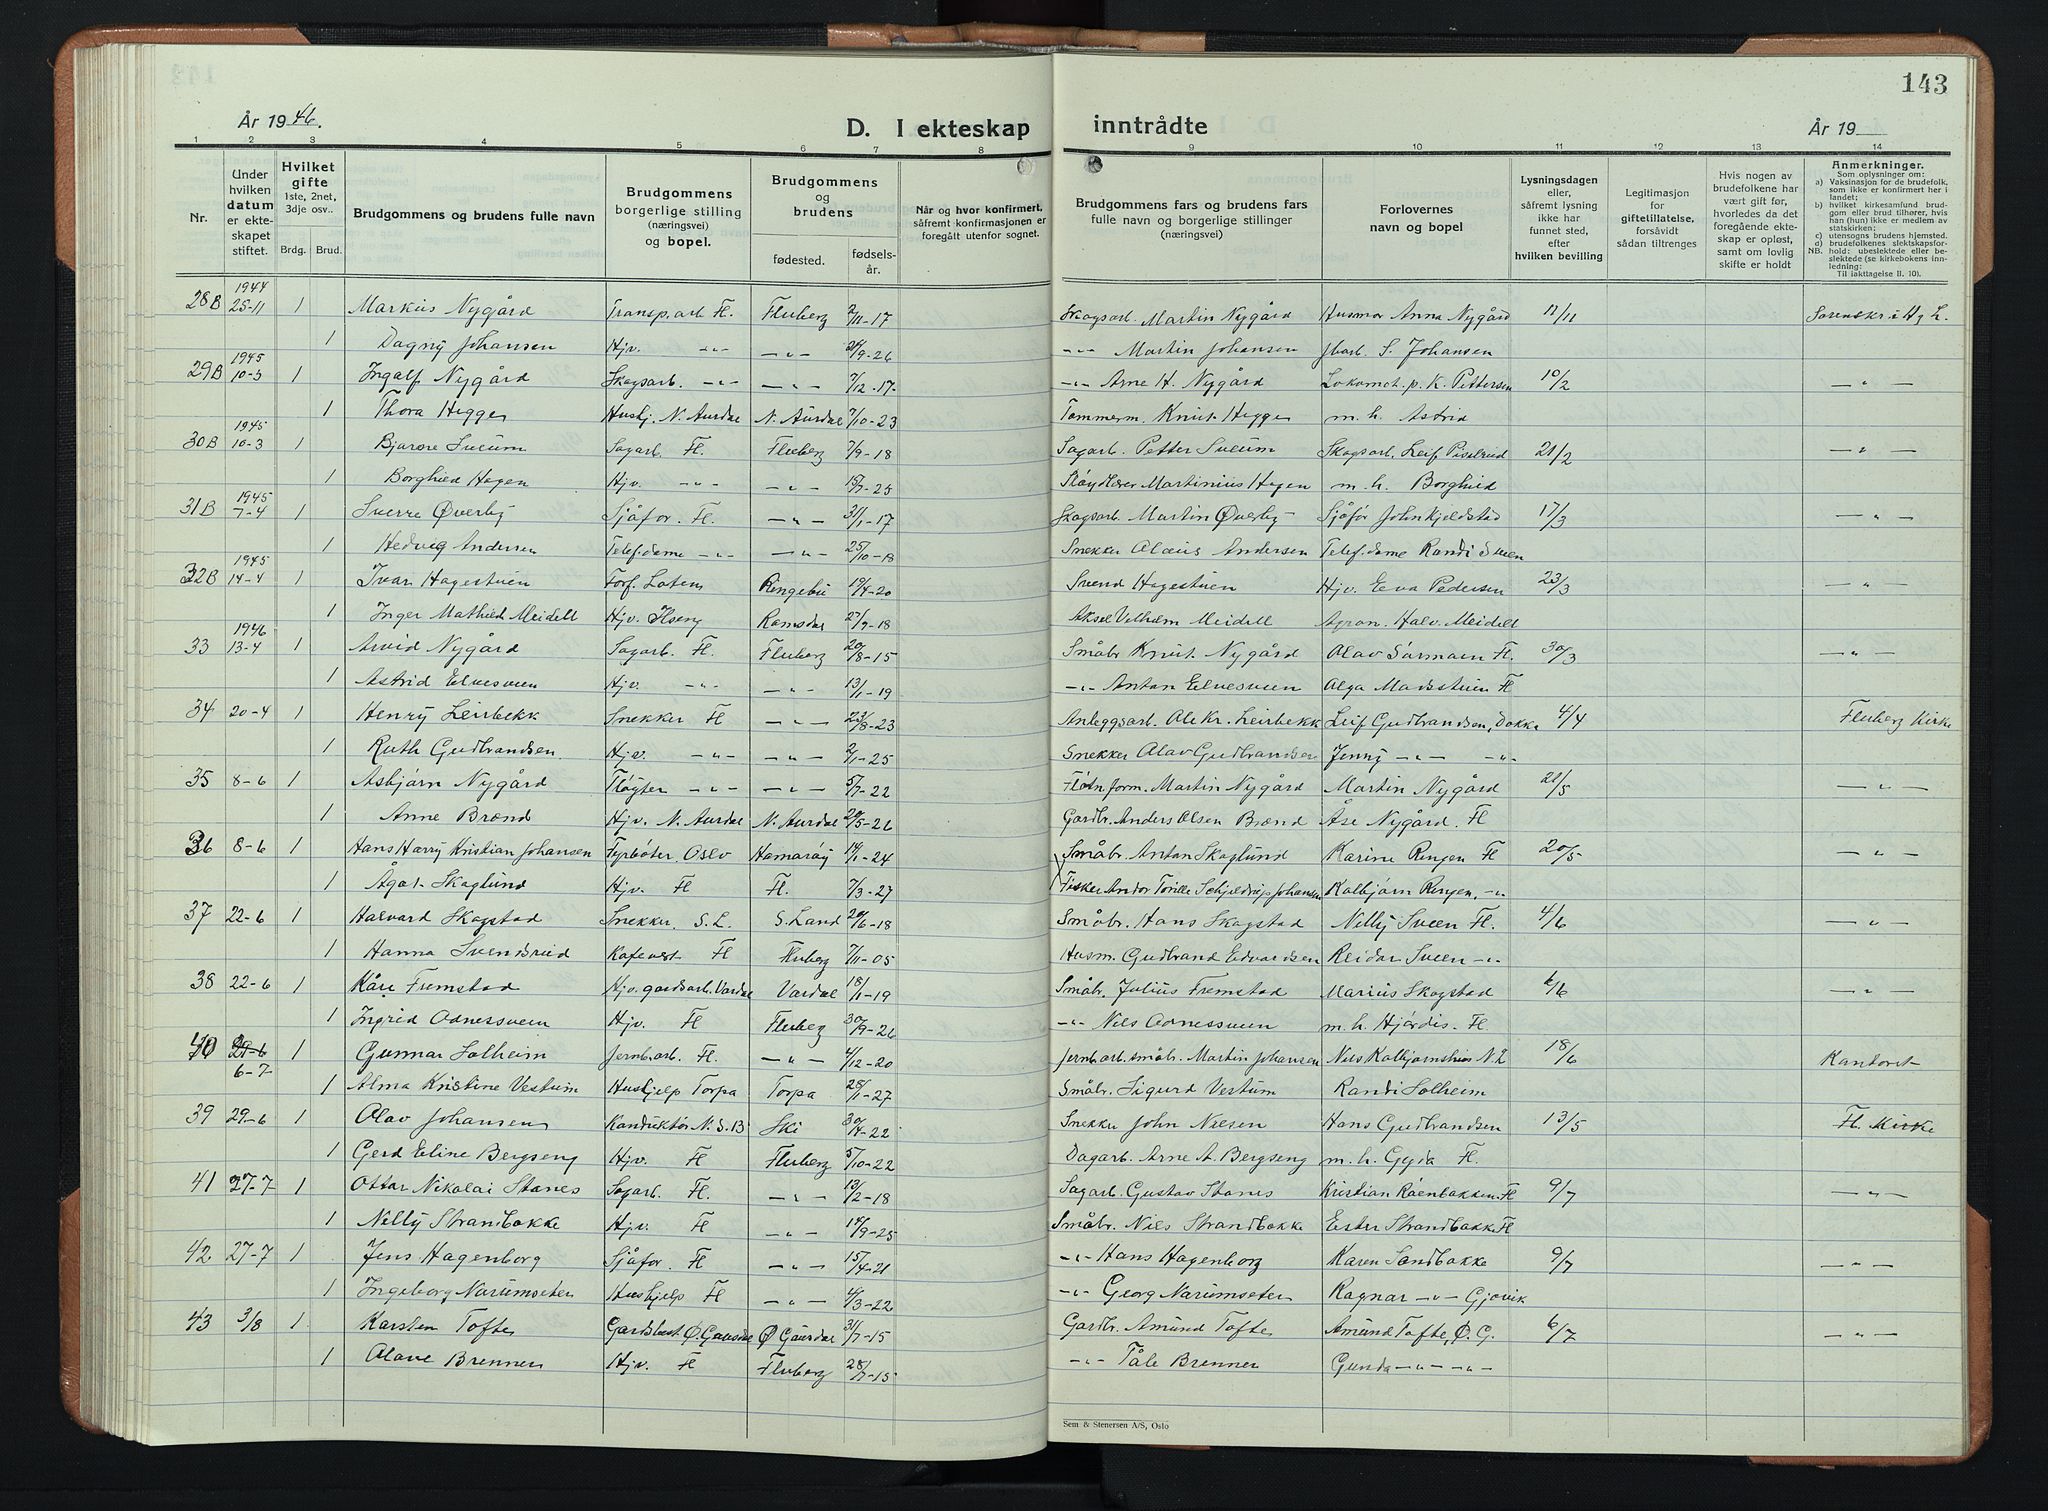 143
År 1946.
D. I ekteskap inntrådte
År 19
1 2 3 4 5 6 7 8 9 10 11 12 13 14
Nr.
Under hvilken datum er ekteskapet stiftet.
Hvilket gifte 1ste, 2net, 3dje osv..
Brdg. Brud.
Brudgommens og brudens fulle navn
Brudgommens borgerlige stilling (næringsvei) og bopel.
Brudgommens og brudens
fødested.
fødselsår.
Når og hvor konfirmert, såfremt konfirmasjonen er foregått utenfor sognet.
Brudgommens fars og brudens fars fulle navn og borgerlige stillinger (næringsvei)
Forlovernes navn og bopel
Lysningsdagen eller, såfremt lysning ikke har funnet sted, efter hvilken bevilling
Legitimasjon for giftetillatelse, forsåvidt sådan tiltrenges
Hvis nogen av brudefolkene har vært gift før, hvorledes da det foregående ekteskap er opløst, samt om lovlig skifte er holdt
Anmerkninger.
Som oplysninger om:
a) Vaksinasjon for de brudefolk, som ikke er konfirmert her i landet;
b) hvilket kirkesamfund brudgom eller brud tilhører, hvis han (hun) ikke er medlem av statskirken;
c) utensogns brudens hjemsted.
d) brudefolkenes slektskapsforhold: ubeslektede eller beslektede (se kirkebokens innledning:
NB. Til iakttagelse II. 10).
28B 1944 25-11 1 Markus Nygård Transp.arb Fl. Fluberg 2/11-17 Skogsarb. Martin Nygård Husmor Anna Nygård 11/11 Sorenskr. i H. g L.
1 Dagny Johansen Hjv. -"- -"- 24/9-26 -"- Martin Johansen Jbarb. S. Johansen
29B 1945 10-3 1 Ingolf Nygård Skogsarb. -"- -"- 7/12-17 -"- Arne H. Nygård Lokomot. p. K. Pettersen 10/2 -"-
1 Thora Hegge Hushj. N. Aurdal N. Aurdal 7/10-23 Tømmerm. Knut Hegge m. h. Astrid
30B 1945 10-3 1 Bjarne Sveum Sagarb. Fl. Fluberg 7/9-18 Sagarb. Petter Sveum Skogsarb. Leif Piselrud 21/2 -"-
1 Borghild Hagen Hjv. -"- -"- -25 Sløydlærer Martinius Hagen m. h. Borghild
31B 1945 7-4 1 Sverre Øverby Sjåfør. Fl. -"- 31/1-17 Skogsarb. Martin Øverby Sjåfør John Kjeldstad 17/3 -"-
1 Hedvig Andersen Telef.dame -"- -"- 25/10-18 Snekker Olaus Andersen Telef.dame Randi Sveen
32B 1945 14-4 1 Ivar Hagestuen Forf. Løten Ringebu 19/4-20 Svend Hagestuen Hjv. Eva Pedersen 23/3 -"-
1 Inger Mathild Meidell Hjv. Ilseng Ramsdal 27/9-18 Aksel Velhelm Meidell Agron. Halv. Meidell
33 1946 13-4 1 Arvid Nygård Sagarb. Fl. Fluberg 20/8-15 Småbr Knut Nygård Olav Sørmoen Fl. 30/3 -"-
1 Astrid Elvesveen Hjv. -"- -"- 13/1-19 -"- Anton Elvesveen Olga Madsstuen Fl
34 20-4 1 Henry Leirbekk Snekker Fl -"- 23/8-23 Anleggsarb. Ole Kr. Leirbekk Leif Gudbrandsen, Dokka 4/4 Fluberg Kirke
1 Ruth Gudbrandsen Hjv. -"- -"- 2/1-25 Snekker Olav Gudbrandsen Jenny -"- -"-
35 8-6 1 Asbjørn Nygård Fløyter -"- -"- 5/7-22 Fløtn form. Martin Nygård Martin Nygård 21/5 -"-
1 Anne Brænd Hjv. N. Aurdal N. Aurdal 20/5-26 Gardbr. Anders Olsen Brænd Åse Nygård. Fl
36 8-6 1 Hans Harry Kristian Johansen Fyrbøter, Oslo Hamarøy 19/1-24 Småbr. Anton Skoglund Karine Ringen Fl 20/5 -"-
1 Ågot Skoglund Hjv. Fl Fl. 7/3-27 Fisker Andor Torille Schjeldrup Johansen Kolbjørn Ringen, -"-
37 22-6 1 Halvard Skogstad Snekker. S. L. S. Land 20/6-18 Småbr. Hans Skogstad Nelly Sveen Fl. 4/6 -"-
1 Hanna Svendsrud Kafevert Fl Fluberg 7/11-05 Husm. Gudbrand Edvardsen Reidar Sveen -"-
38 22-6 1 Kåre Fremstad Hjv. gardsarb. Vardal Vardal 18/1-19 Småbr. Julius Fremstad Marius Skogstad 6/6 -"-
1 Ingrid Odnessveen Hjv. Fl Fluberg 30/9-26 -"- Nils Odnessveen m. h. Hjørdis. Fl.
40 29-6 6-7 1 Gunnar Solheim Jernb.arb. Fl. -"- 4/12-20 Jernb arb. småbr. Martin Johansen Nils Kolbjørnshus N. L 18/6 Kontoret
1 Alma Kristine Vestum Hushjelp Torpa Torpa 28/1-27 Småbr. Sigurd Vestum Randi Solheim
39 29-6 1 Olav Johansen Konduktør N. S. B Ski 30/-22 Snekker John Nilsen Hans Gudbrandsen 13/5 Fl. Kirke
1 Gerd Eline Bergseng Hjv. Fl Fluberg 5/10-22 Dagarb. Arne A. Bergseng m. h. Gyda Fl.
41 27-7 1 Ottar Nikolai Stanes Sagarb. Fl. -"- 13/2-18 Sagarb. Gustav Stanes Kristian Røenbakken. Fl 9/7 -"-
1 Nelly Strandbakke Hjv. Fl -"- 14/9-25 Småbr. Nils Strandbakke Ester Strandbakke Fl
42 27-7 1 Jens Hagenborg Sjåfør. Fl -"- 15/4-21 -"- Hans Hagenborg Karen Sandbakke 9/7 -"-
1 Ingeborg Narumseter Hushjelp Fl -"- 4/3-22 -"- Georg Narumseter Ragnar -"- Gjøvik
43 3/8 1 Karsten Tofte Gardsbest. Ø. Gausdal Ø Gausdal 31/7-15 Gardbr. Amund Tofte Amund Tofte, Ø. G. 6/7 -"-
1 Olave Brennen Hjv. Fl Fluberg 28/7-15 -"- Tåle Brennen Gunda -"- -"-
Sem & Stenersen A/S, Oslo